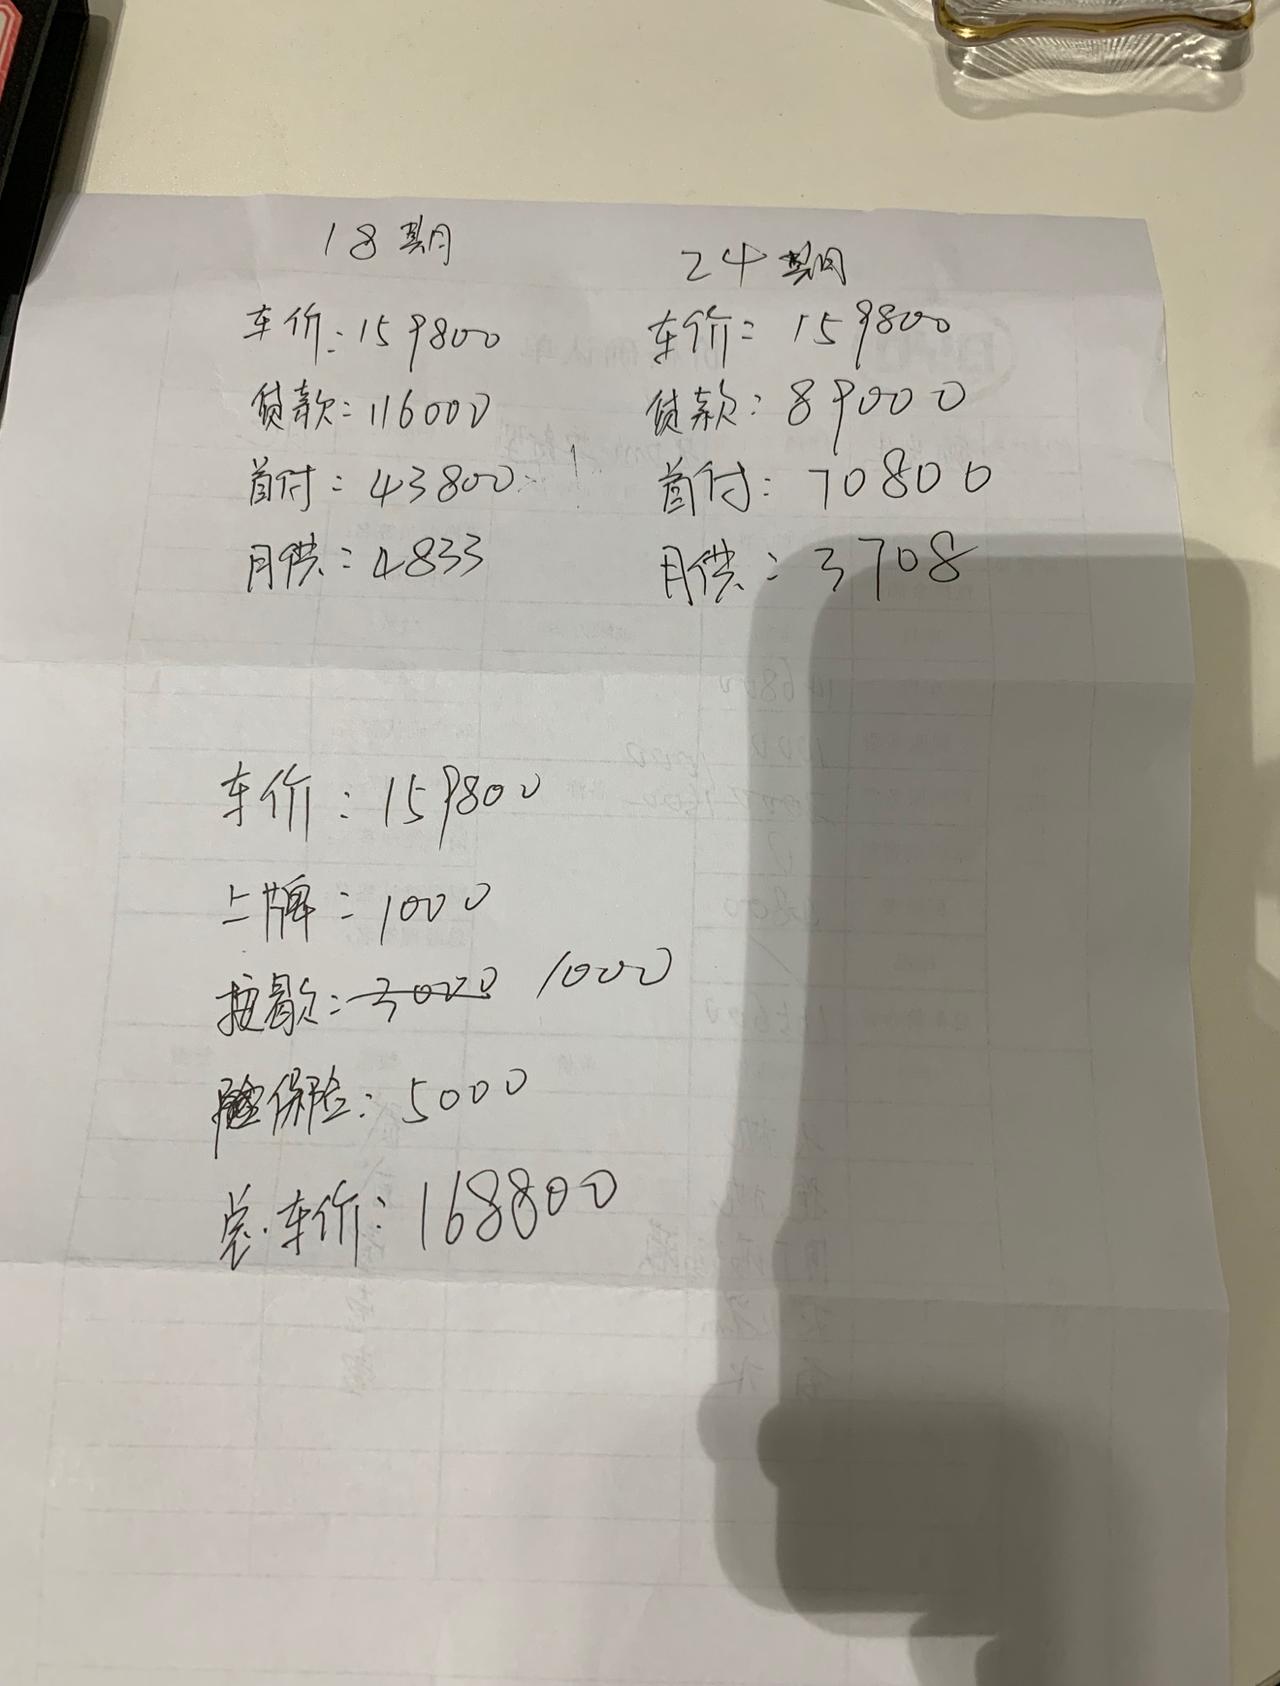 18期
车价：159800
贷款：116000
首付：43800
月供：4833
24期
车价：159800
贷款：89000
首付：70800
月供：3708
车价：159800
上牌：1000
按揭：3000 1000
保险：5000
总车价：168800